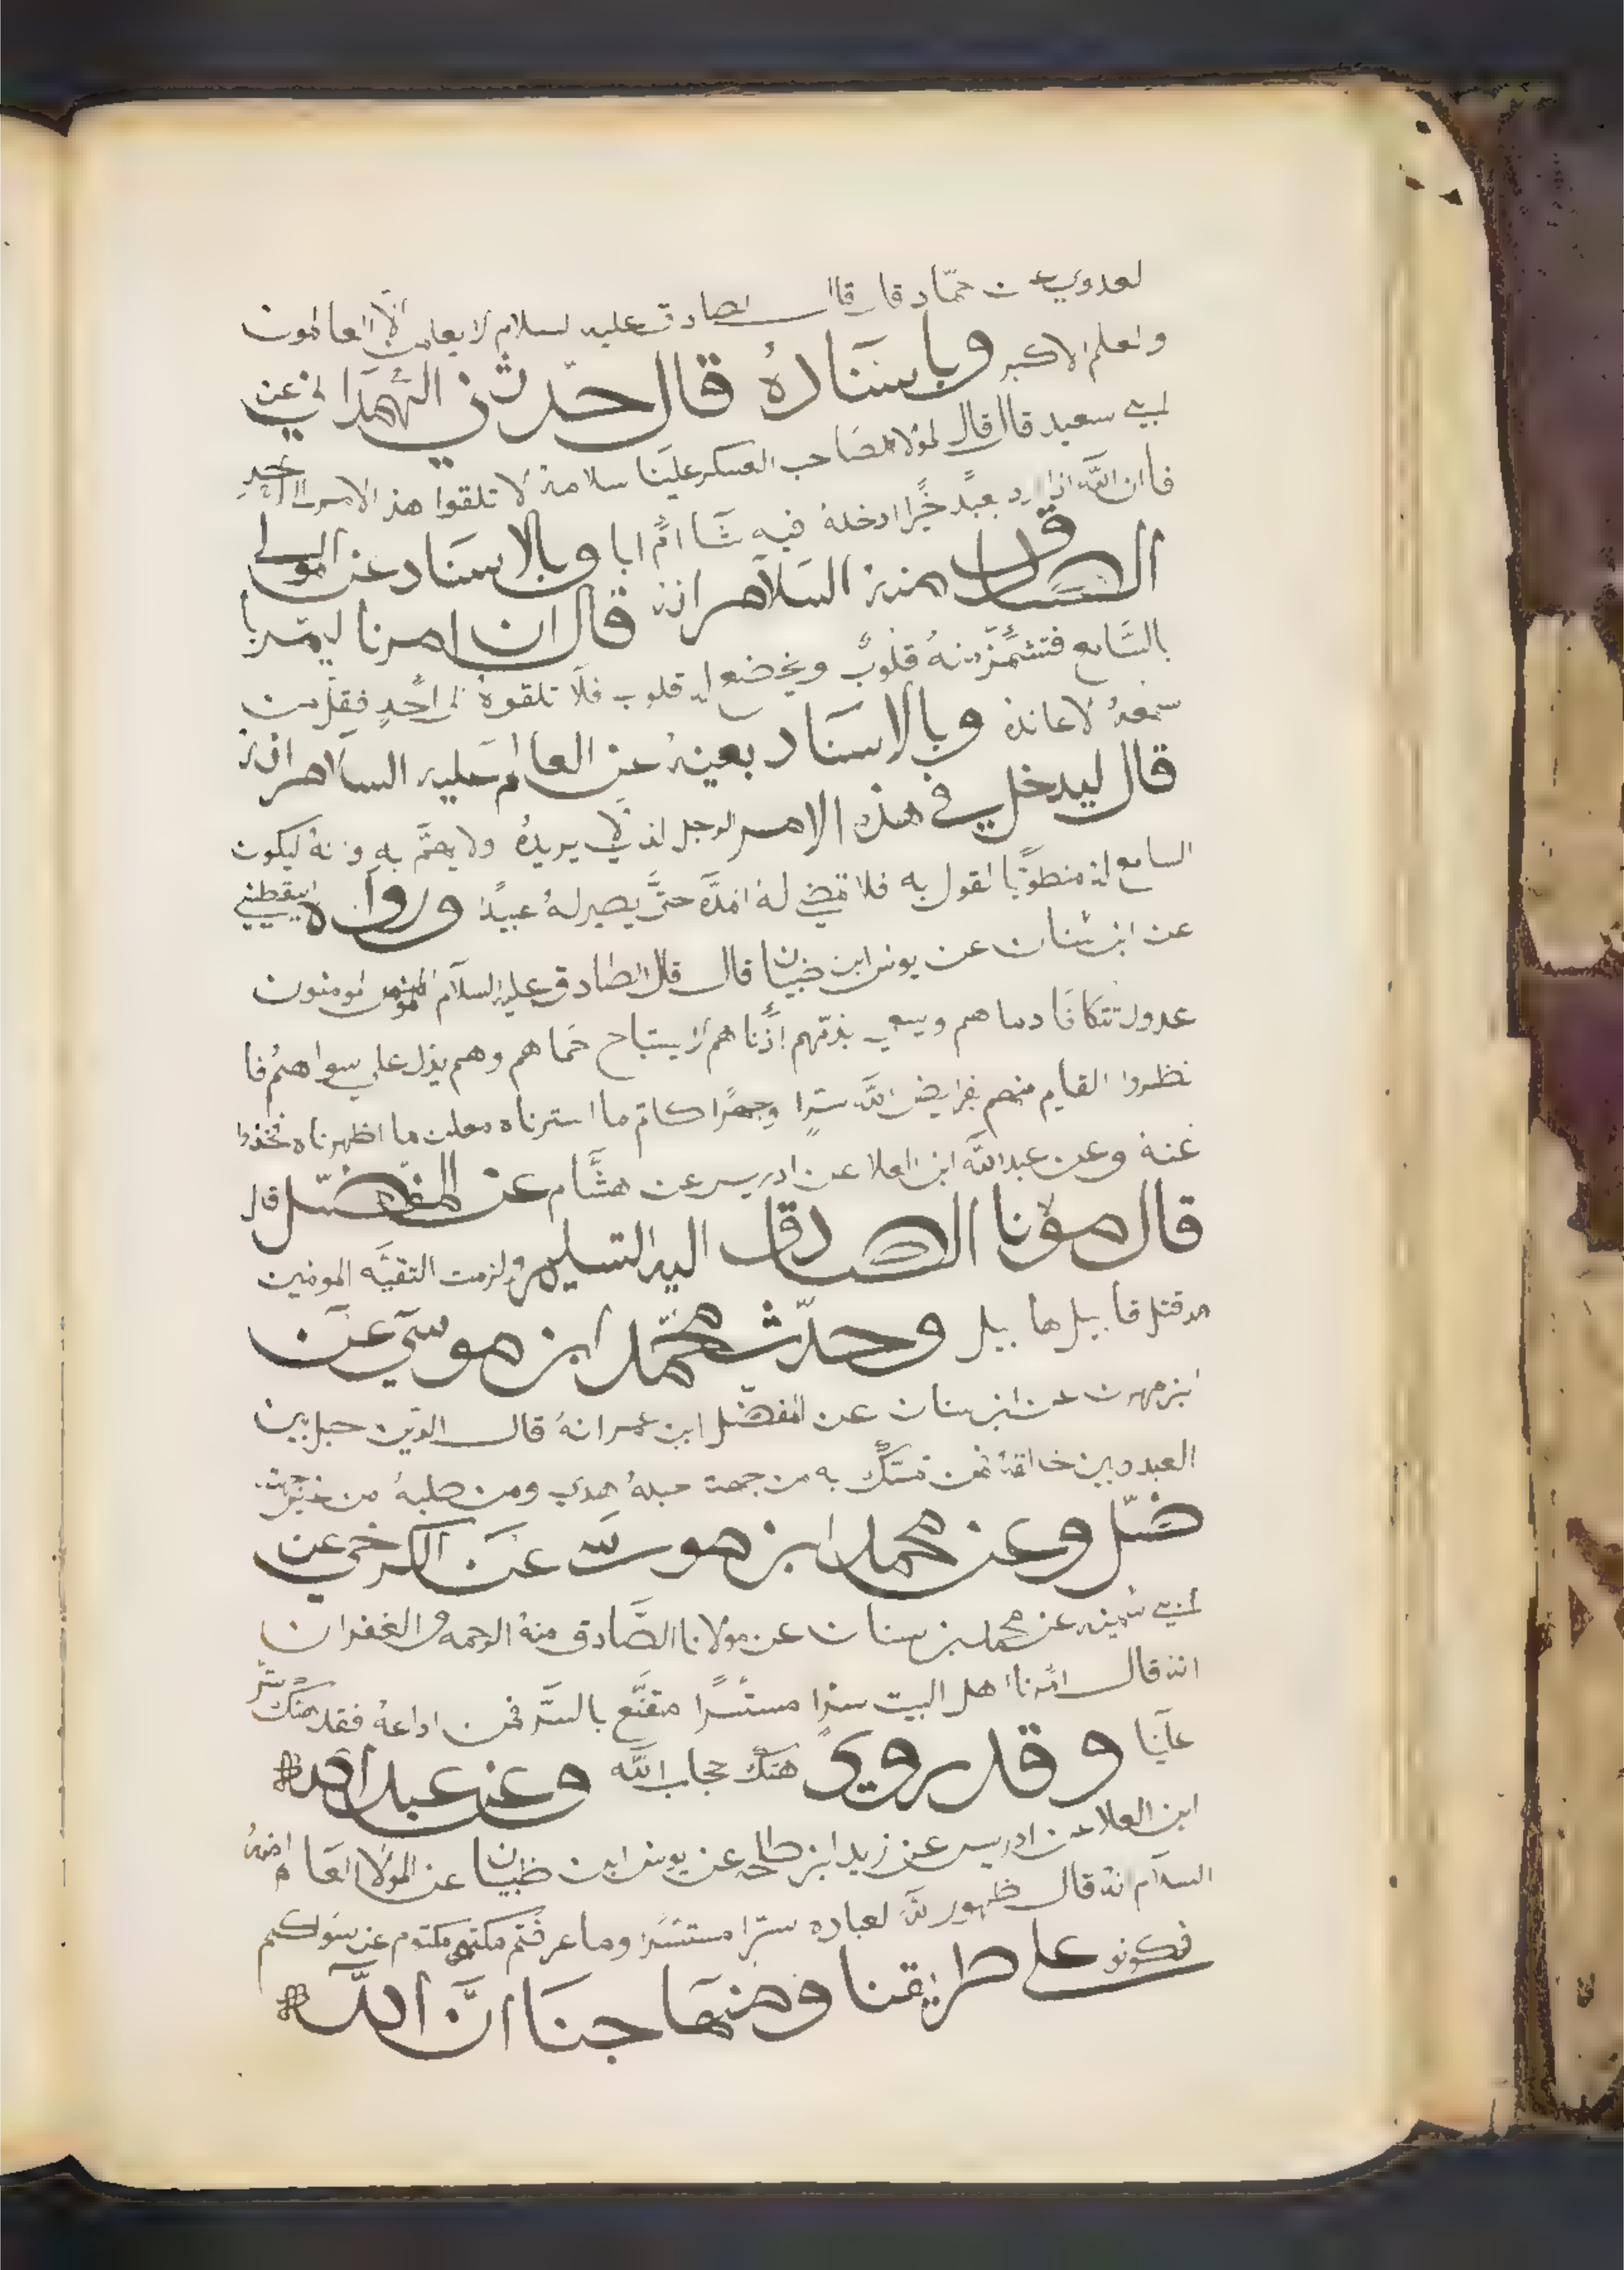 لعدوي عن حمّاد قال قال الصادق عليه لسلام لا يعلمن الّا العالمون
والعلم الاكبر وباسنَادهُ قال حدّثني الهمَداني عن
ابي سعيد قال قال لمولا صَاحب العسكر علينا سلامهُ لا تلقوا هذ الامر الا احدٍ
فاان اللّه اذا اراد بعبدٍ خيرًا ادخلهُ فيه شَا امْ ابا وبالاسنَاد عن المولى
الصادق منه السَلامر انهُ قال ان امرنا ليمر با
بالسَّامع فتشمئزّ منهُ قلوبٌ ويخضع له قلوب فلَا تلقوهُ الى احدٍ فقلّ من
سمعهُ لاعاندهُ وبالاسنَاد بعينهُ عن العالم عليه السلَامر انهُ
قال ليدخل في هذه الامر الرجل لذي لا يريدهُ ولا يهمَّ به وانهُ ليكون
السامع له منطوّيًا لقول به فلا تمضي لهُ امدَّه حتَّى يصير لهُ عبيدًا وروَاه اليقطيني
عن ابن سنان عن يونس ابن ضبيان قال قال الصادق عليه السلَام المؤمنون
عدول تتكافَا دماهم ويسعي بذمّتهم ادْناهم لا يستباح حَماهم وهم يدٌ علي سواهمُ فا
نظروا القايم منهم بفرايض اللَّه سترًا وجهرًا كاتم ما استرناه معلن ما اظهرناه فخذوا
عَنهُ وعن عبداللَّه ابن العلا عن ادريس عن هشَّام عن المفضّل قال
قال مولانا الصادق اليه التسليم ولزمت التقيَّه المومنين
مذ قتل قابيل هابيل وحدّث محمّد ابن موسَي عَن
ابن مهران عن ابن سنان عن المفضّل ابن عمر انهُ قال الدّين حبل بين
العبد وبين خالقهُ فمن تمسّكَ به من جهت حبلهُ هدي ومن طلبهُ من غير جهته
ضّل وعن محمد ابن موسَى عَن الكرخي عن
ابي سمينه عن محمد بن سنان عن مولانا الصَّادق منهُ الرحمه والغفران
انهُ قال امْرنا اهل البيت سترًا مستسرًا مقنَّع بالسَّر فمن اداعهُ فقد هتكَ سترَ
علَينا وقد روي هتكَ حجاب اللَّه وعن عبد الله
ابن العلا عن ادريس عن زيد ابن طلحه عن يونس ابن ظبيان عن المولَا العَالم منهُ
السلَام انهُ قال ظهور للَّه لعباده سترًا مستسرًا وما عرفتم مكتمو مكتوم عن سَواكم
فكونو علي طريقنا ومنهَاجنَا انَّ اللَّه